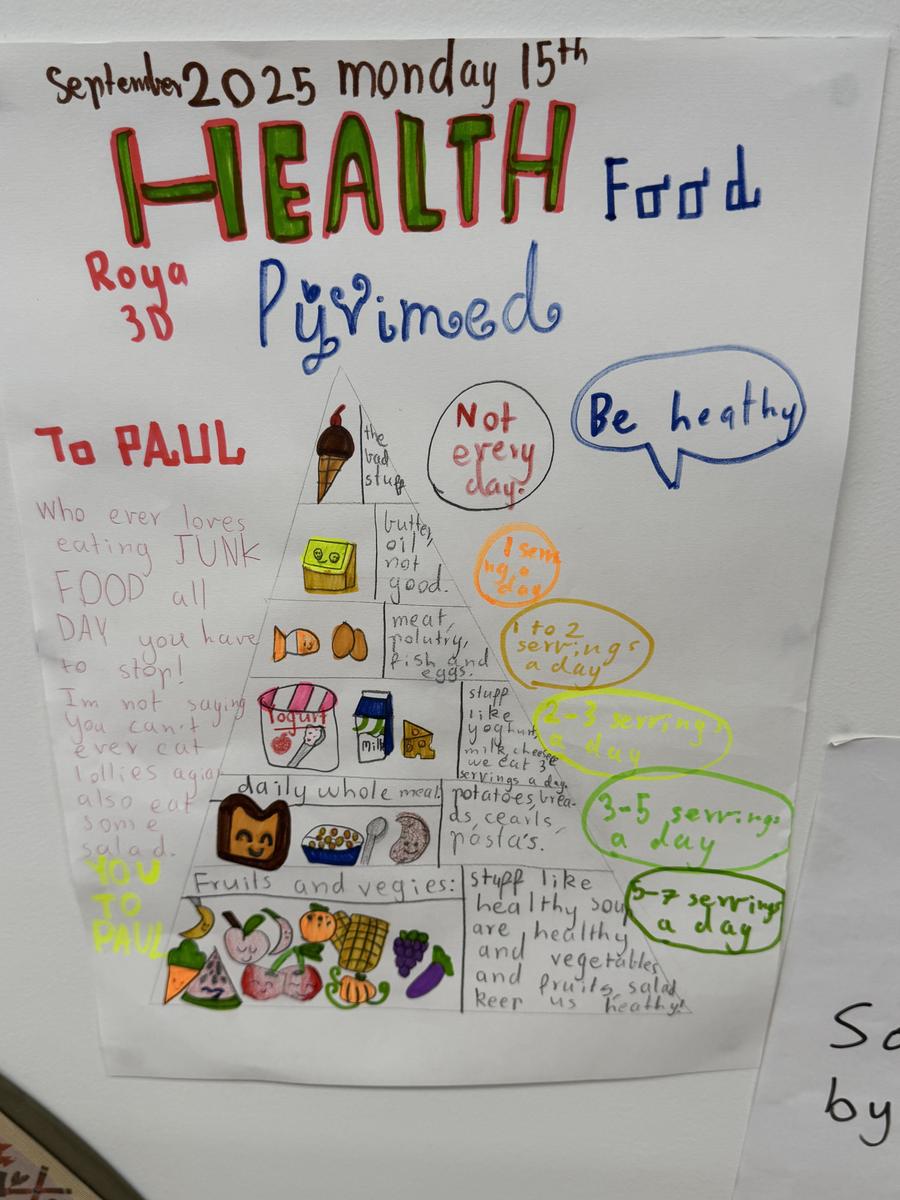 September 2025 monday 15th
HEALTH Food
Roya
3D
Pyrimed
To PAUL
Who ever loves
eating JUNK
FOOD all
DAY you have
to stop!
Im not saying
you can't
ever eat
lollies agian
also eat
some
salad.
YOU
TO
PAUL
the
bad
stuff
Not
every
day.
Be heathy
butter,
oil
not
good.
1 servi
ng a
day
meat,
polutry,
fish and
eggs.
1 to 2
servings
a day
Yogurt
Milk
stuff
like
yoghurt,
milk, cheese
we eat 3
servings a day.
2-3 servings
a day
daily whole meal
potatoes, brea-
ds, cearls,
pasta's.
3-5 servings
a day
Fruits and vegies:
stuff like
healthy sou
are healthy
and vegetables
and fruits, salad
keep us heathy!
5-7 servings
a day
by